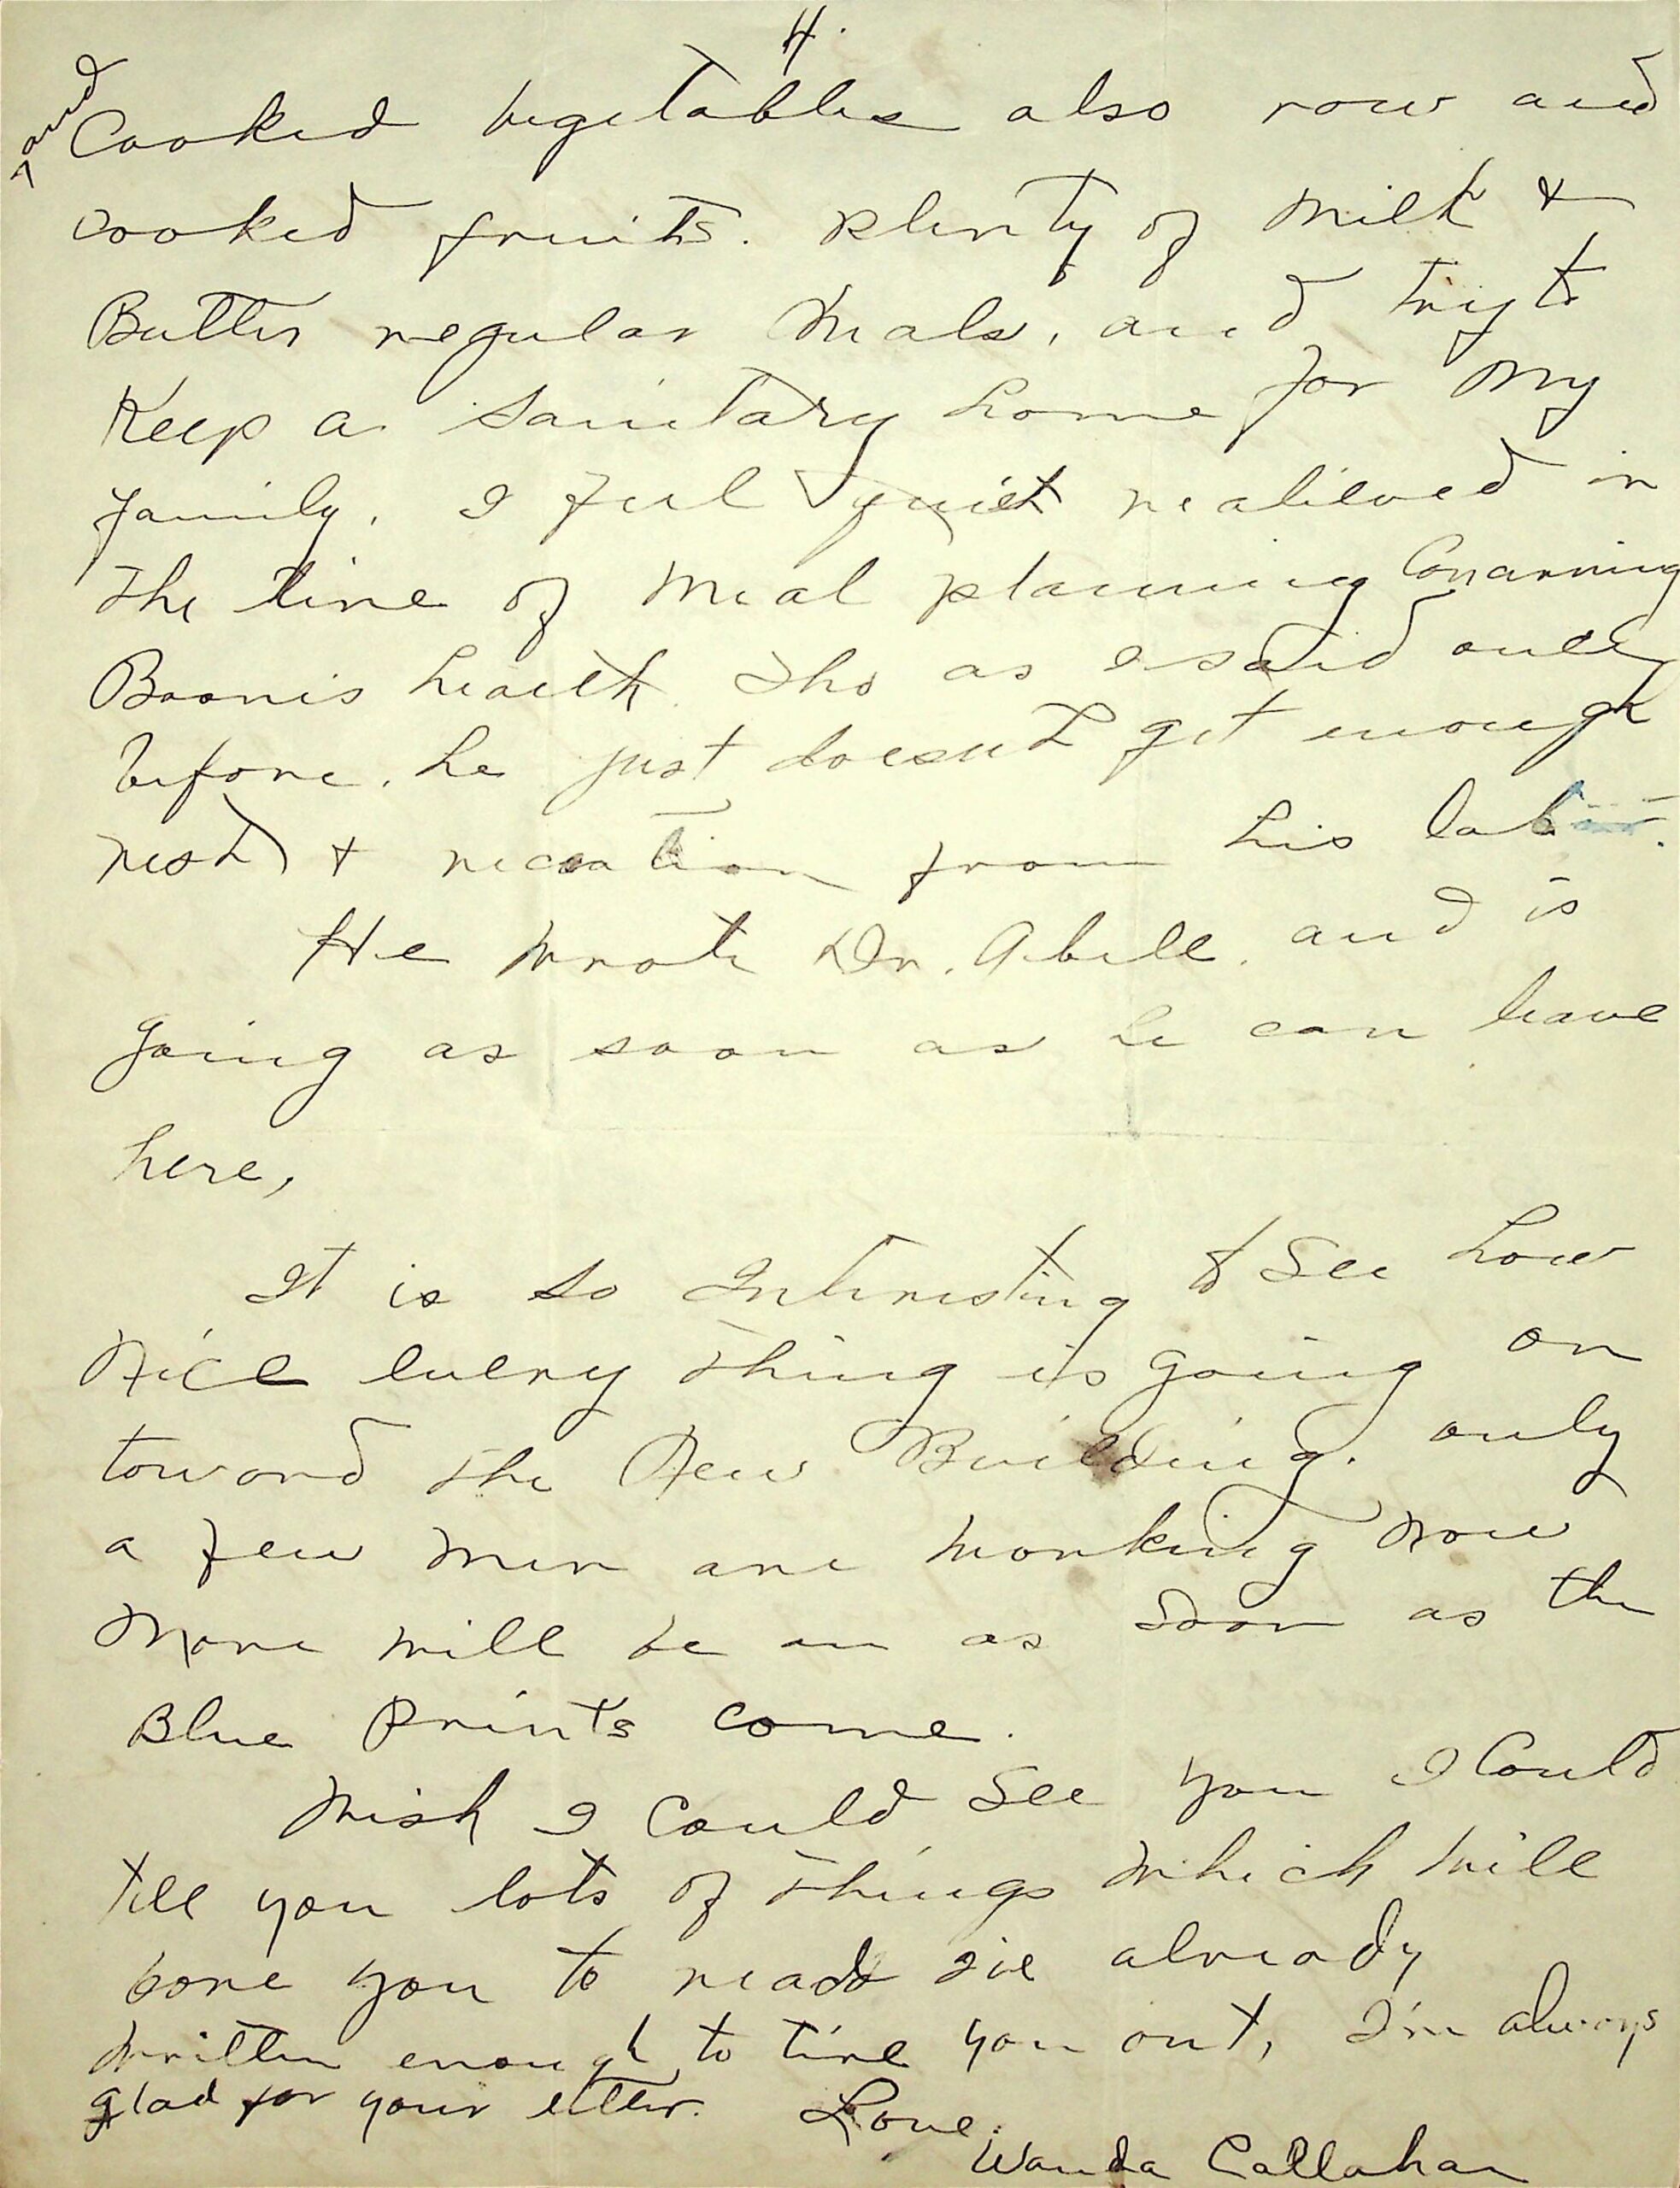 4.
and
Cooked vegetables also raw and
cooked fruits. plenty of milk &
Butter regular meals, and try to
Keep a sanitary home for my
family. I feel quiet realieved in
the line of meal planning Conarning
Boonis health tho as I said only
before. he just doesn't get enough
rest & recation from his labor.
He wrote Dr. Abell. and is
going as soon as he can leave
here,
It is so Interesting to See how
Nice every thing is going on
toward the New Building. only
a few men are working now
More will be on as soon as the
Blue Prints come.
Wish I Could See you I Could
tell you lots of things which will
bore you to read I've already
written enough to tire you out, I'm always
glad for your etter. Love.
Wanda Callahan